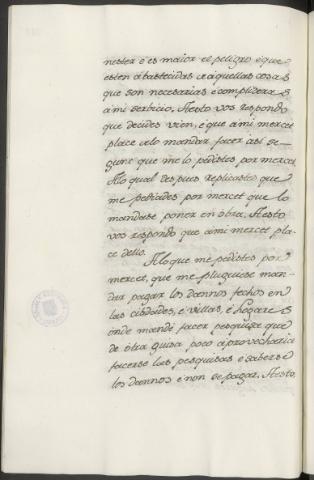 nester é es maior el peligro é que
esten abastecidas de aquellas cosas
que son necesarias é complideras
a mi serbicio. A esto vos respondo
que decides vien, é que a mi mercet
place de lo mandar facer asi se-
gunt que me lo pedistes por mercet.
A lo qual despues replicastes que
me pediades por mercet que lo
mandase poner en obra. A esto
vos respondo que a mi mercet pla-
ce dello.
A lo que me pedistes por
mercet, que me pluguiese man-
dar pagar los dannos fechos en
las cibdades, é villas, é logares
onde mandé facer pesquisa que
de otra guisa poco aprovecharia
facerse las pesquisas é saberse
los dannos é non se pagar. A esto,